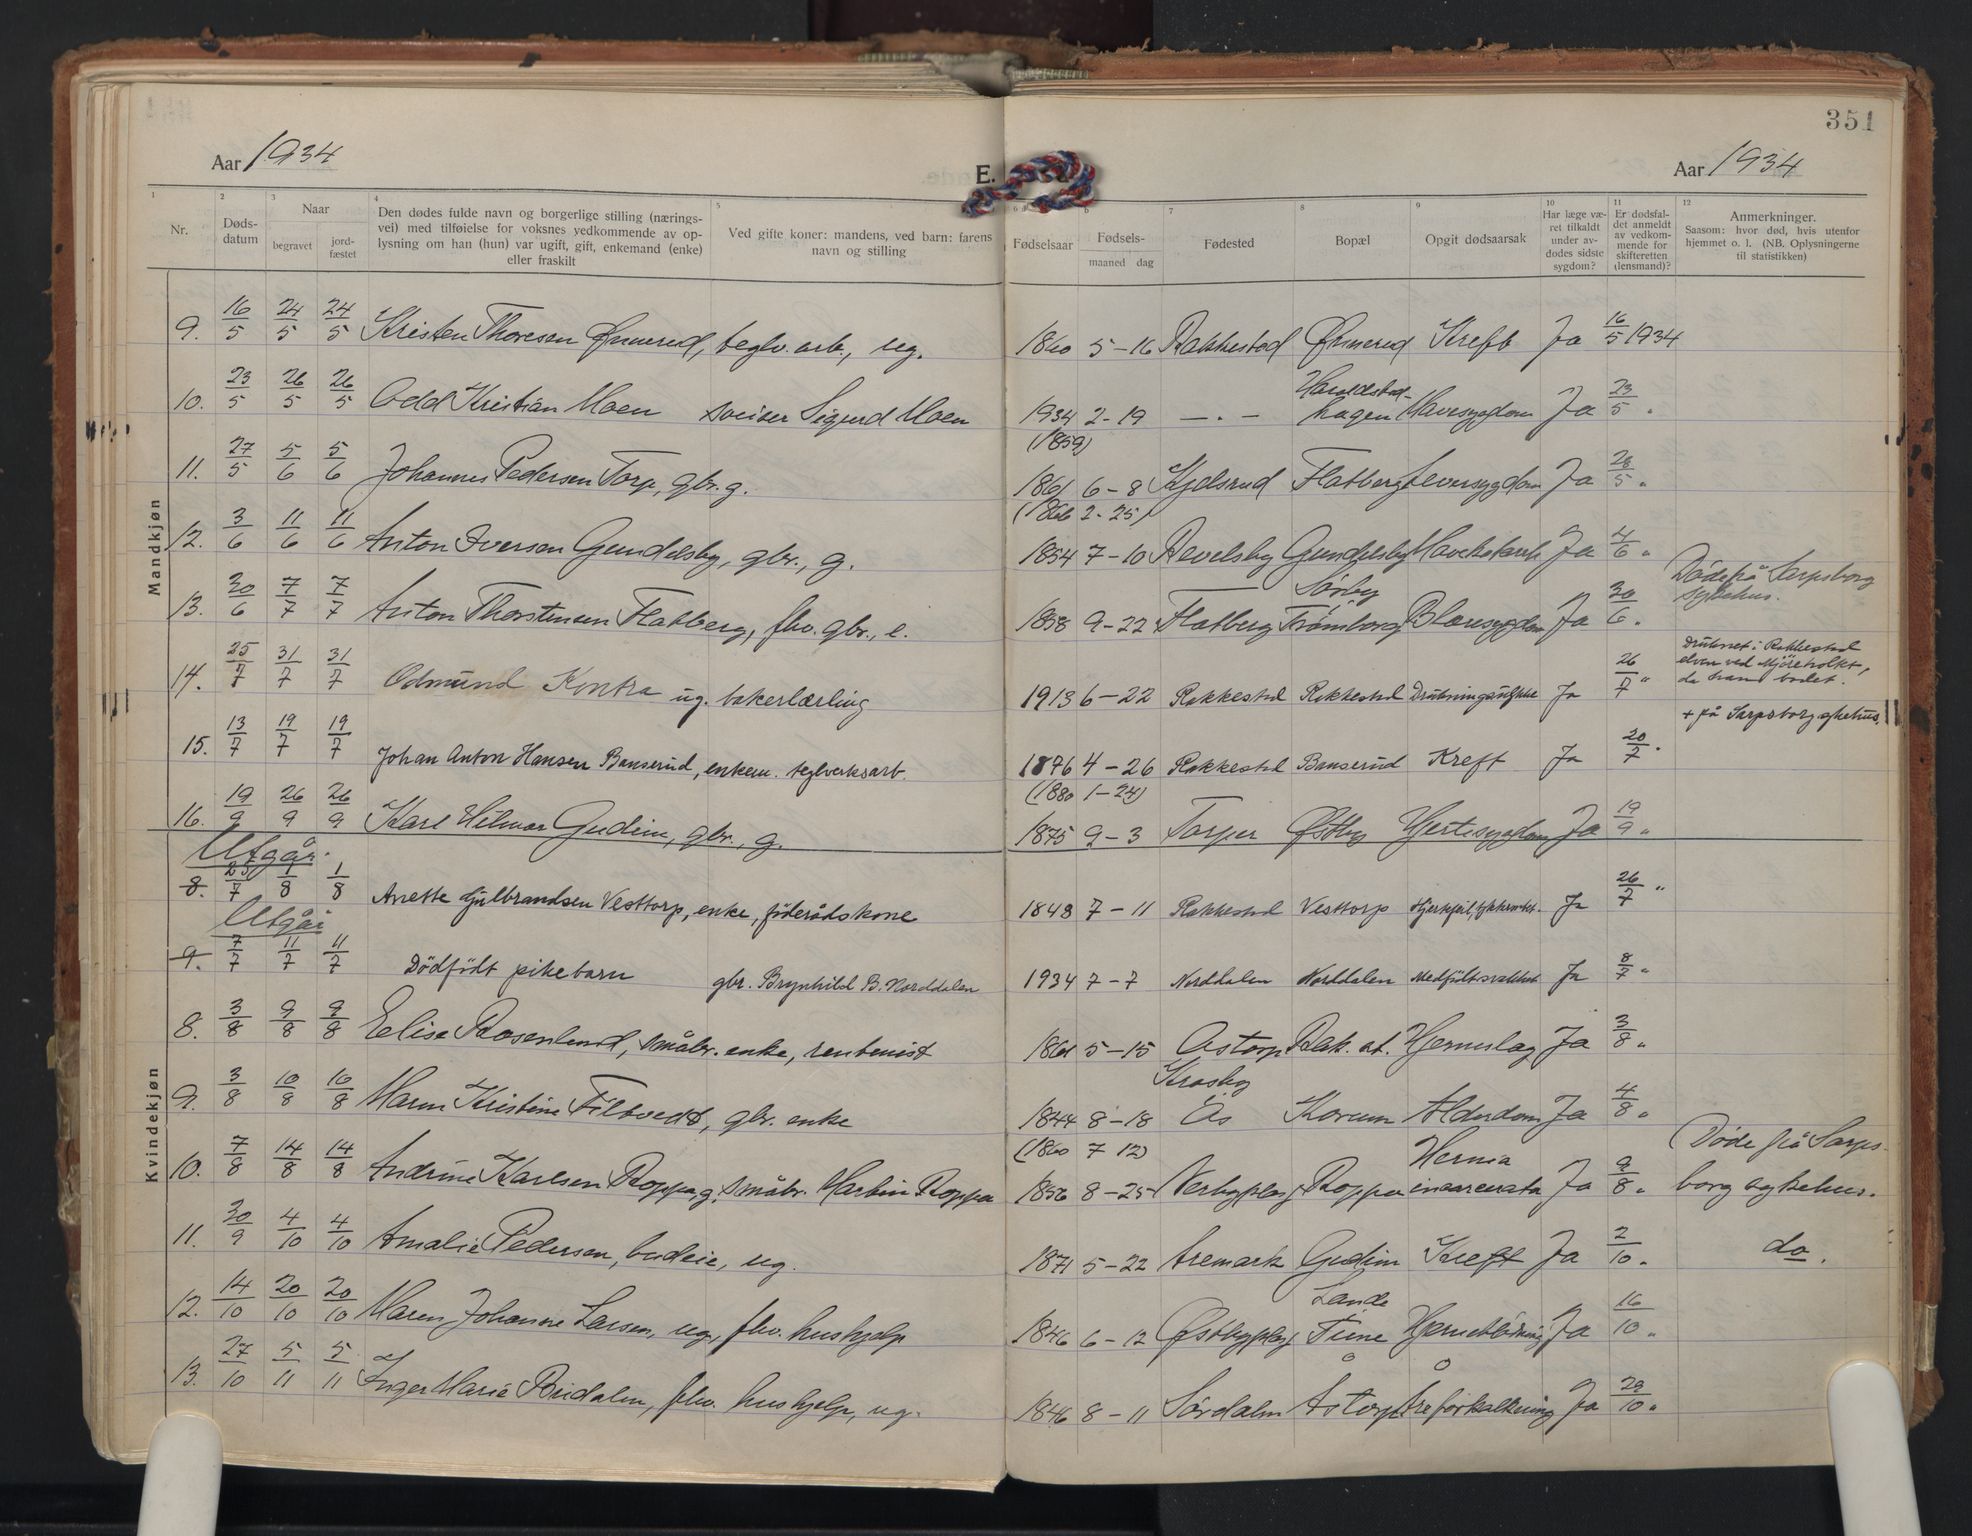 351
Aar 1934 E. Aar 1934
1 2 3 4 5 6 7 8 9 10 11 12
Nr. Døds-datum Naar begravet jord-fæstet Den dødes fulde navn og borgerlige stilling (nærings-vei) med tilføielse for voksnes vedkommende av op-lysning om han (hun) var ugift, gift, enkemand (enke) eller fraskilt Ved gifte koner: mandens, ved barn: farens navn og stilling Fødselsaar Fødsels-maaned dag Fødested Bopæl Opgit dødsaarsak Har læge væ-ret tilkaldt under av-dødes sidste sygdom? Er dødsfal-det anmeldt av vedkom-mende for skifteretten (lensmand)? Anmerkninger. Saasom: hvor død, hvis utenfor hjemmet o. l. (NB. Oplysningerne til statistikken)
Mandkjøn
9. 16/5 24/5 24/5 Kristen Thoresen Ørmerud, teglv. arb., ug. 1860 5-16 Rakkestad Ørmerud Kreft Ja 16/5 1934
10. 23/5 26/5 26/5 Odd Kristian Moen sveiser Sigurd Moen 1934 2-19 —.— Haraldstad-hagen Mavesygdom Ja 23/5 "
(1859)
11. 27/5 5/6 5/6 Johannes Pedersen Torp, gbr. g. 1861 6-8 Kjelsrud Flatberg Leversygdom Ja 28/5 "
(1866 2-25)
12. 3/6 11/6 11/6 Anton Iversen Gundelsby, gbr., g. 1854 7-10 Revelsby Gundelsby Mavekatarrh Ja 4/6 "
13. 30/6 7/7 7/7 Anton Thorstensen Flatberg, fhv. gbr., e. 1858 9-22 Flatberg Sørby Trømborg Blæresygdom Ja 30/6 " Døde på Sarpsborg sykehus.
14. 25/7 31/7 31/7 Odmund Kontra ug. bakerlærling 1913 6-22 Rakkestad Rakkestad Drukningsulykke Ja 26/7 " Druknet i Rakkestad elven ved da han badet.
15. 13/7 19/7 19/7 Johan Anton Hansen Banserud, enkem. teglverksarb. 1876 4-26 Rakkestad Banserud Kreft Ja 20/7 " + på Sarpsborg sykehus.
(1880 1-24)
16. 19/9 26/9 26/9 Karl Hilmar Gudim, gbr., g. 1875 9-3 Torper Østby Hjertesygdom Ja 19/9 "
Kvindekjøn
Utgår.
8. 25/7 1/8 1/8 Anette Gulbrandsen Vesttorp, enke, føderådskone 1848 7-11 Rakkestad Vesttorp Ja 26/7 "
Utgår
9. 7/7 11/7 11/7 Dödfödt pikebarn gbr. Brynhild B. Norddalen 1934 7-7 Norddalen Norddalen Medfødt svakhet Ja 8/7 "
8. 3/8 9/8 9/8 Elise Rosenlund, småbr. enke, rentenist 1861 5-15 Åstorp Rak. st. Hjerneslag Ja 3/8 "
9. 3/8 10/8 10/8 Maren Kristine Filtvedt, gbr. enke 1844 8-18 Kraaby Ås Korum Alderdom Ja 4/8 "
(1860 7 12)
10. 7/8 14/8 14/8 Andrine Karlsen Roppa, g. småbr. Martin Roppa 1856 8-25 Verbyplass Roppa Hernia incarcerata Ja 9/8 " Døde på Sarps-borg sykehus.
11. 30/9 4/10 4/10 Amalie Pedersen, budeie, ug. 1871 5-22 Aremark Gudim Kreft Ja 2/10 " do.
12. 14/10 20/10 20/10 Maren Johanne Larsen, ug., fhv. hushjelp 1846 6-12 Østbyplass Lande Tune Hjerneblødning Ja 16/10 "
13. 27/10 5/11 5/11 Inger Marie Budalen, fhv. hushjelp, ug. 1846 8-11 Sørdalen Åstorp Åreforkalkning Ja 29/10 "